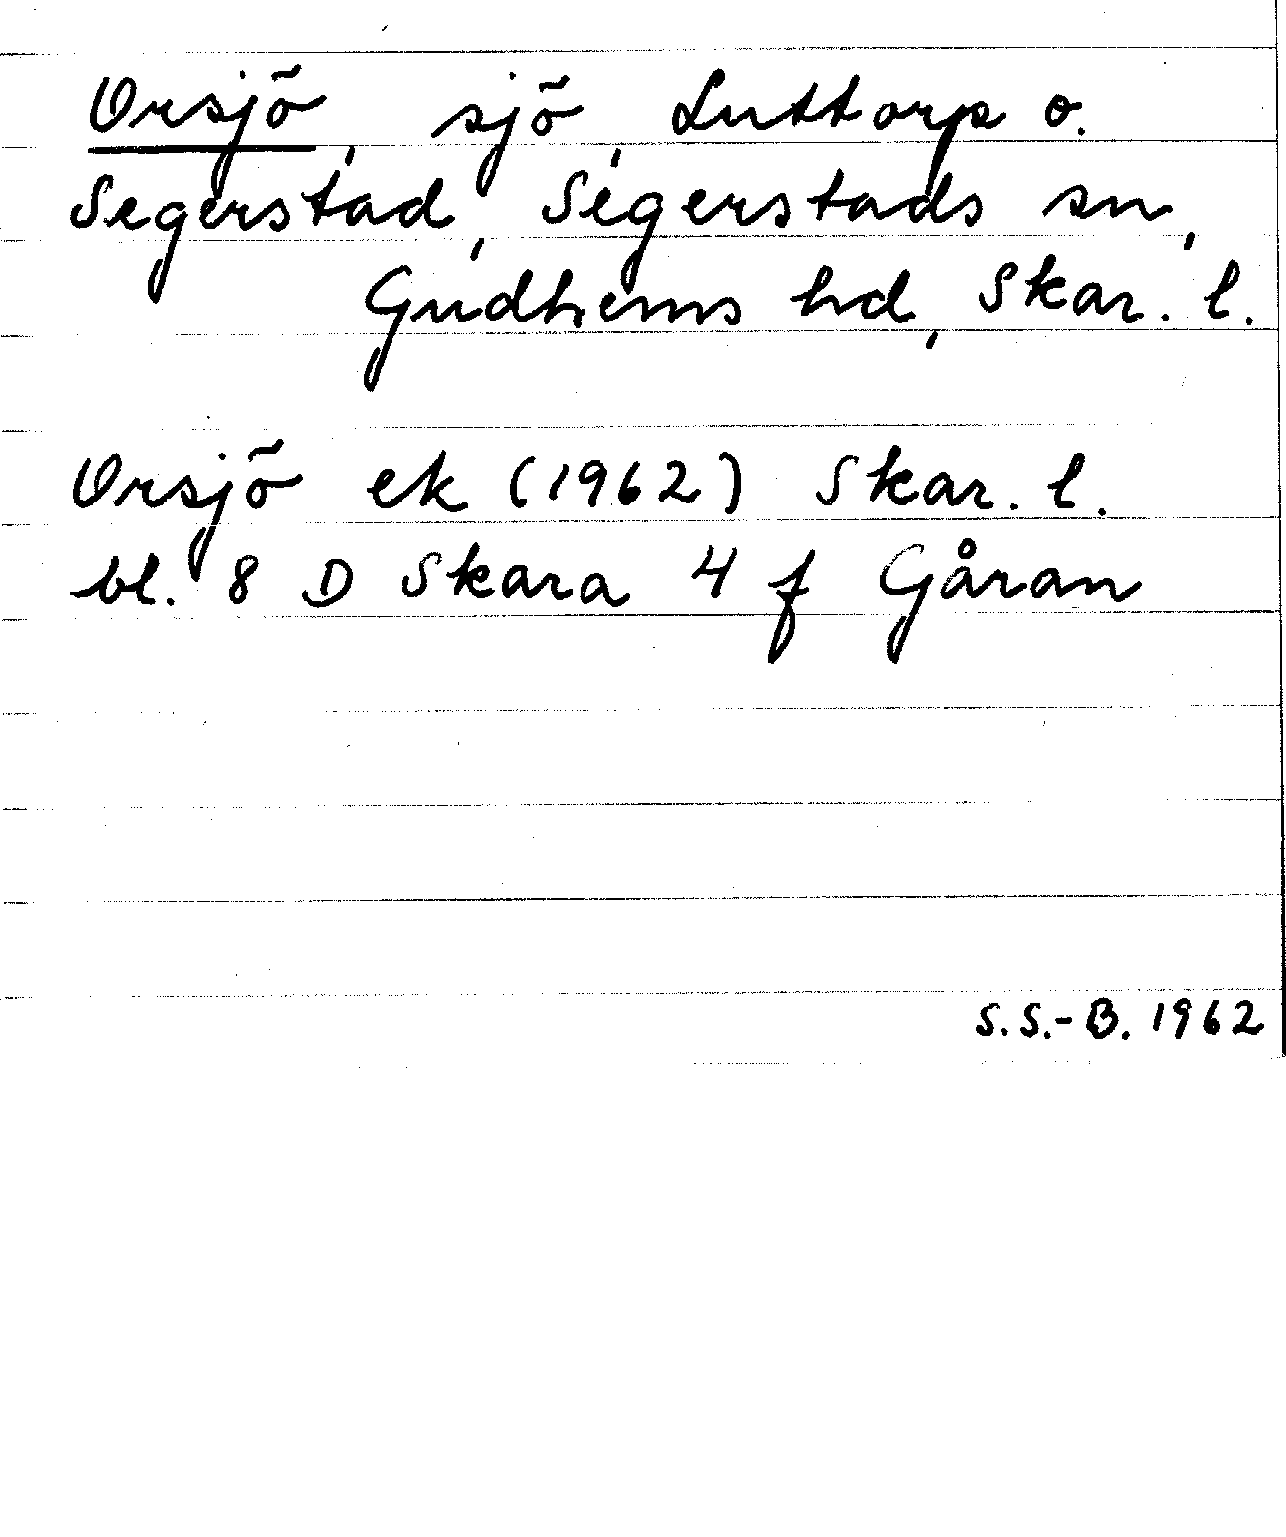 Orsjö, sjö, Luttorp o.
Segerstad, Segerstads sn,
Gudhems hd, Skar. l.
Orsjö ek (1962) Skar. l.
bl. 8 D Skara 4 f Gåran
S.S.-B. 1962